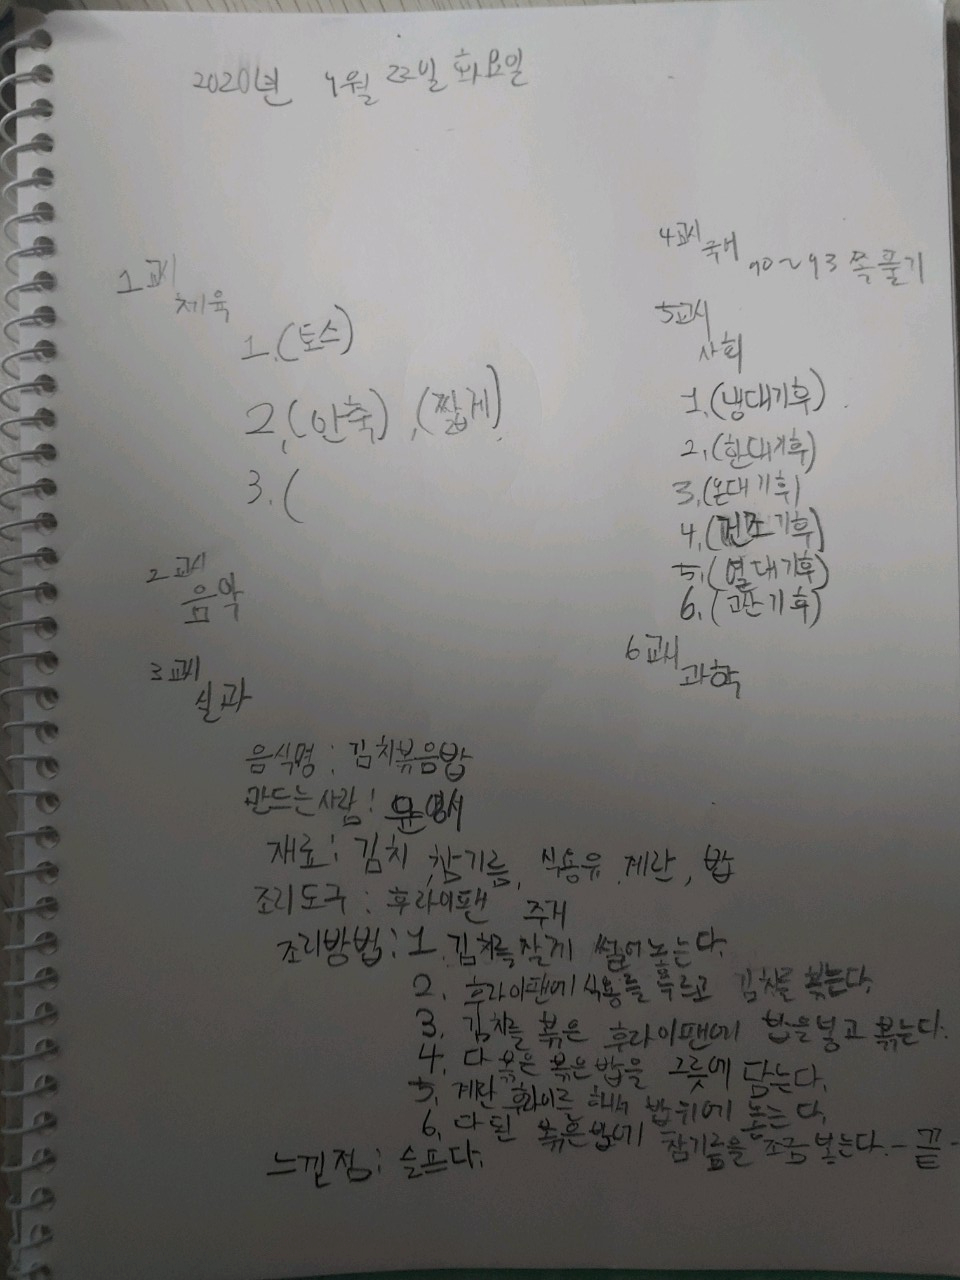 2020년 9월 22일 화요일
1교시
체육
1.(토스)
2.(안축),(짧게)
3.(
2교시
음악
3교시
실과
음식명 : 김치볶음밥
만드는사람 : 윤영서
재료 : 김치, 참기름, 식용유, 계란, 밥
조리도구 : 후라이팬 주개
조리방법 : 1. 김치를 잘게 썰어 놓는다.
2. 후라이팬에 식용를 두르고 김치를 볶는다.
3. 김치를 볶은 후라이팬에 밥을 넣고 볶는다.
4. 다 볶은 볶은밥을 그릇에 담는다.
5. 계란 후라이를 해서 밥 위에 놓는다.
6. 다 된 볶은밥에 참기름을 조금 넣는다. - 끝 -
느낀점 : 슬프다.
4교시
국어 90~93 쪽 풀기
5교시
사회
1.(냉대기후)
2.(한대기후)
3.(온대기후)
4.(건조기후)
5.(열대기후)
6.(고산기후)
6교시
과학